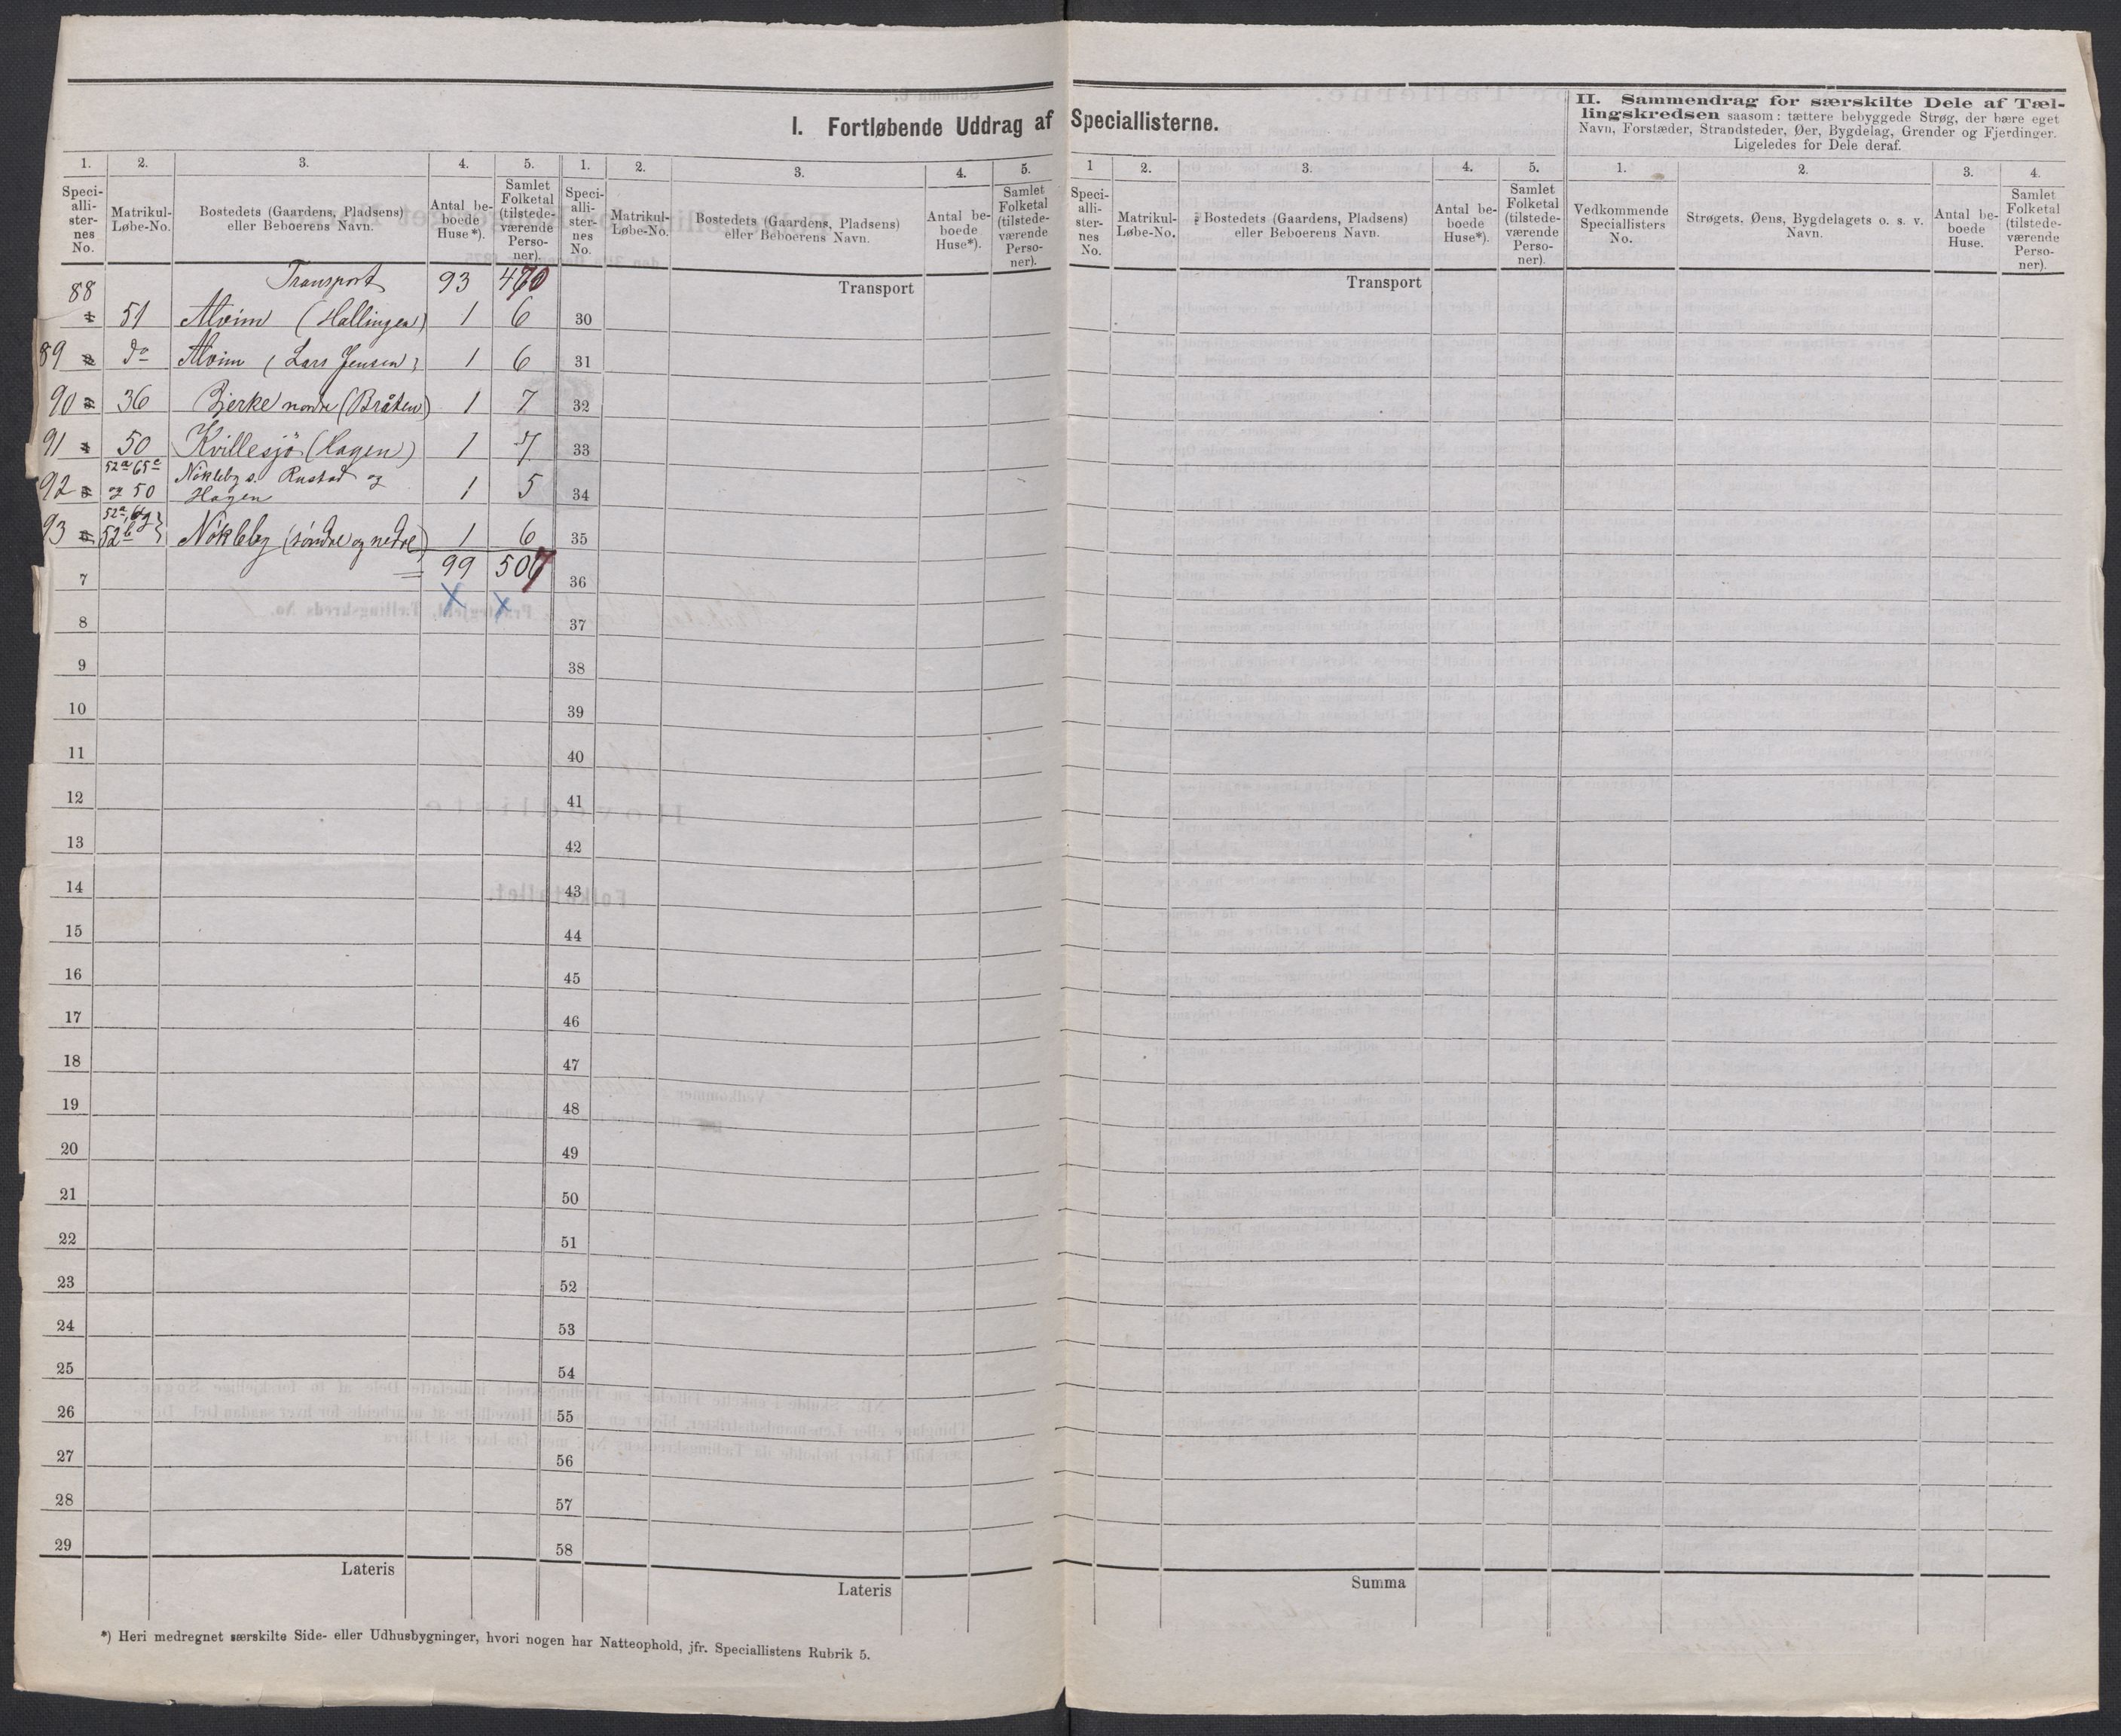 I. Fortløbende Uddrag af Speciallisterne.
II. Sammendrag for særskilte Dele af Tæl-
lingskredsen saasom: tættere bebyggede Strøg, der bære eget
Navn, Forstæder, Strandsteder, Øer, Bygdelag, Grender og Fjerdinger.
Ligeledes for Dele deraf.
1. 2. 3. 4. 5. 1. 2. 3. 4. 5. 1 2. 3. 4. 5. 1. 2. 3. 4.
Speci-
alli-
ster-
nes
No.
Matrikul-
Løbe-No.
Bostedets (Gaardens, Pladsens)
eller Beboerens Navn.
Antal be-
boede
Huse*).
Samlet
Folketal
(tilstede-
værende
Perso-
ner).
Speci-
alli-
ster-
nes
No.
Matrikul-
Løbe-No.
Bostedets (Gaardens, Pladsens)
eller Beboerens Navn.
Antal be-
boede
Huse*).
Samlet
Folketal
(tilstede-
værende
Perso-
ner).
Speci-
alli-
ster-
nes
No.
Matrikul-
Løbe-No.
Bostedets (Gaardens, Pladsens)
eller Beboerens Navn.
Antal be-
boede
Huse*).
Samlet
Folketal
(tilstede-
værende
Perso-
ner).
Vedkommende
Speciallisters
No.
Strøgets, Øens, Bygdelagets o. s. v.
Navn.
Antal be-
boede
Huse.
Samlet
Folketal
(tilstede-
værende
Perso-
ner).
Transport 93 470 Transport Transport
88 51 Alvim (Hallingen) 1 6 30
89 do Alvim (Lars Jensen) 1 6 31
90 36 Bjerke nordre (Bråten) 1 7 32
91 50 Kvillesjö (Hagen) 1 7 33
52a 65c Nökleby s. Rustad og
92 og 50 Hagen 1 5 34
93 52b Nökleby (söndre og nedre) 1 6 35
99 507
7 36
X X
8 37
9 38
10 39
11 40
12 41
13 42
14 43
15 44
16 45
17 46
18 47
19 48
20 49
21 50
22 51
23 52
24 53
25 54
26 55
27 56
28 57
29 58
Lateris Lateris Summa
*) Heri medregnet særskilte Side- eller Udhusbygninger, hvori nogen har Natteophold, jfr. Speciallistens Rubrik 5.